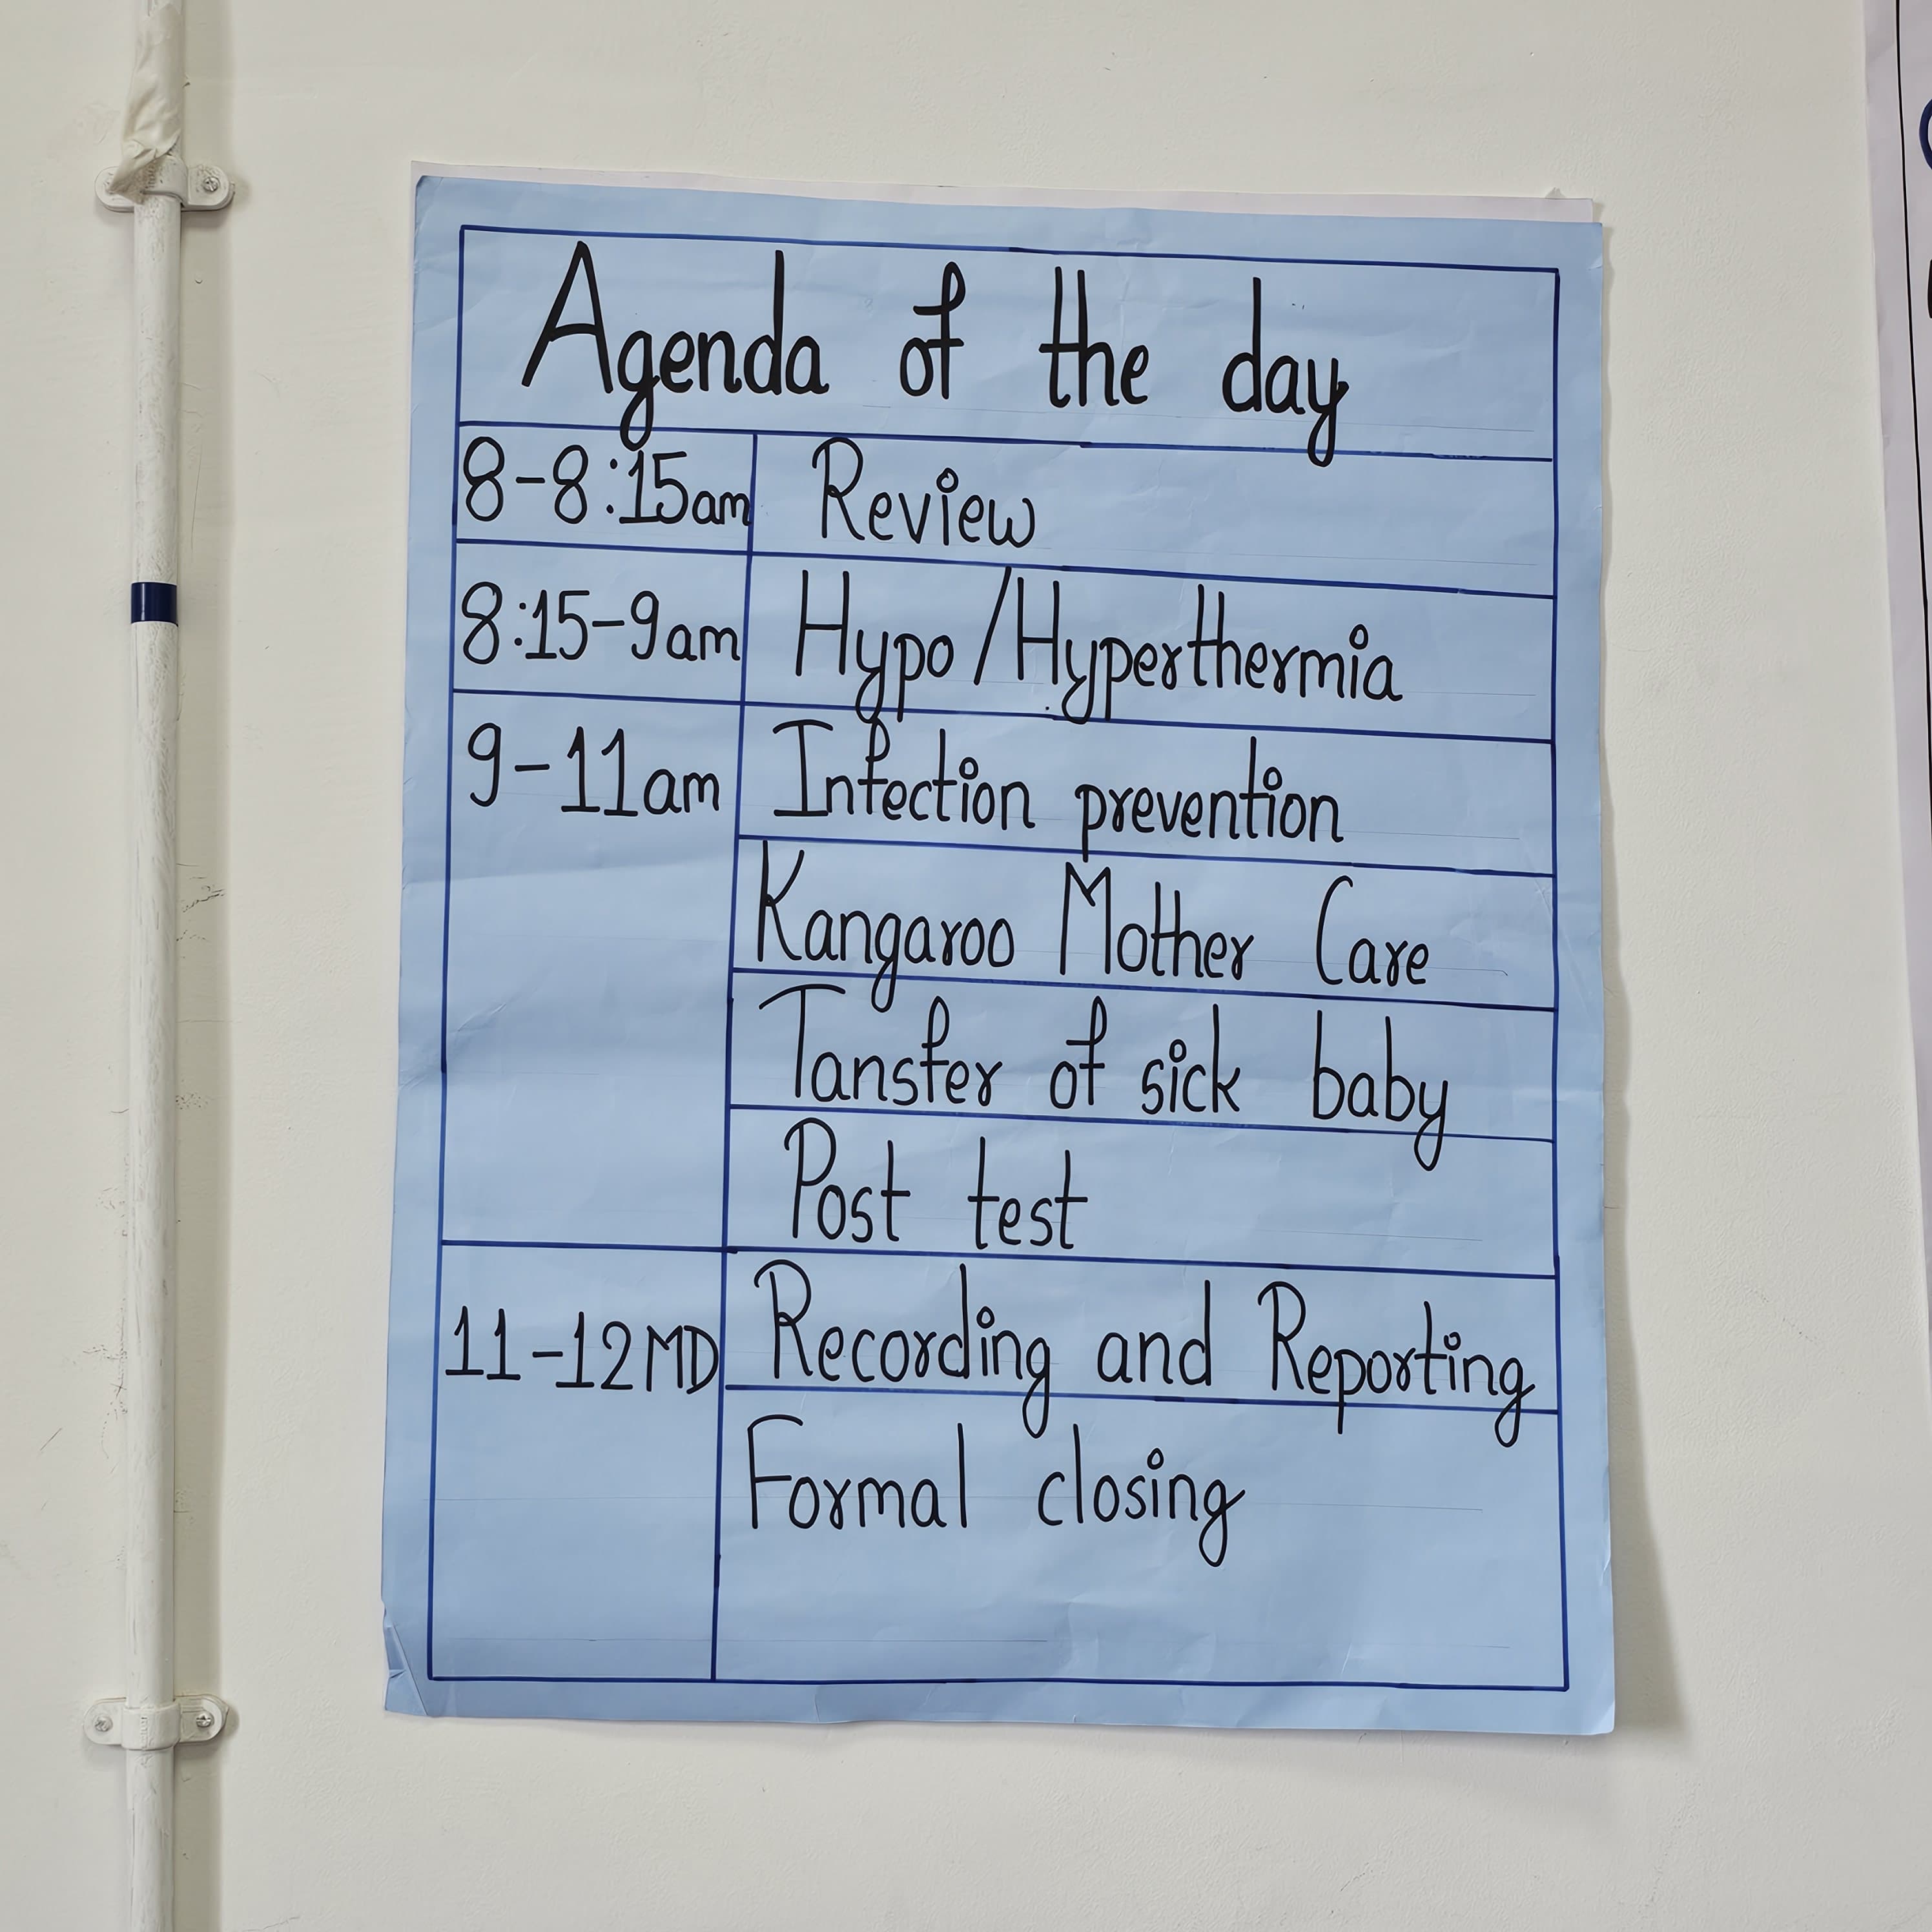 Agenda of the day
8-8:15am Review
8:15-9am Hypo/Hyperthermia
9-11am Infection prevention
Kangaroo Mother Care
Tansfer of sick baby
Post test
11-12MD Recording and Reporting
Formal closing